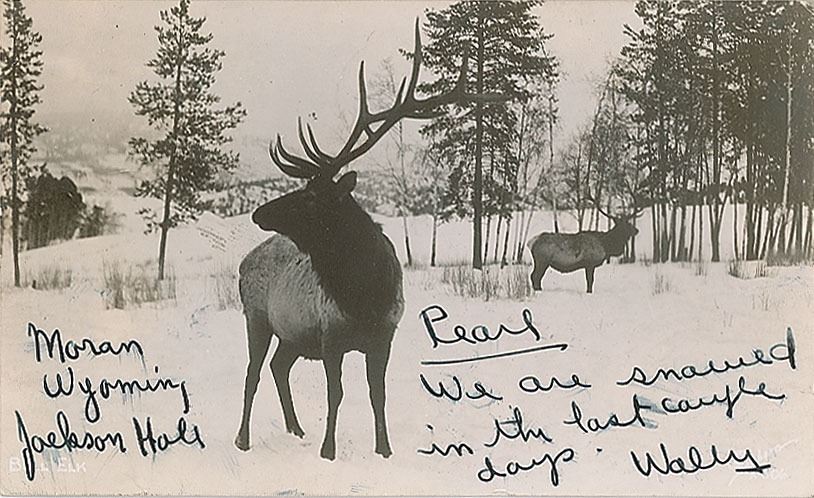 Moran
Wyoming
Jackson Hole
BULL ELK
Pearl
We are snowed
in the last couple
days.
Wally